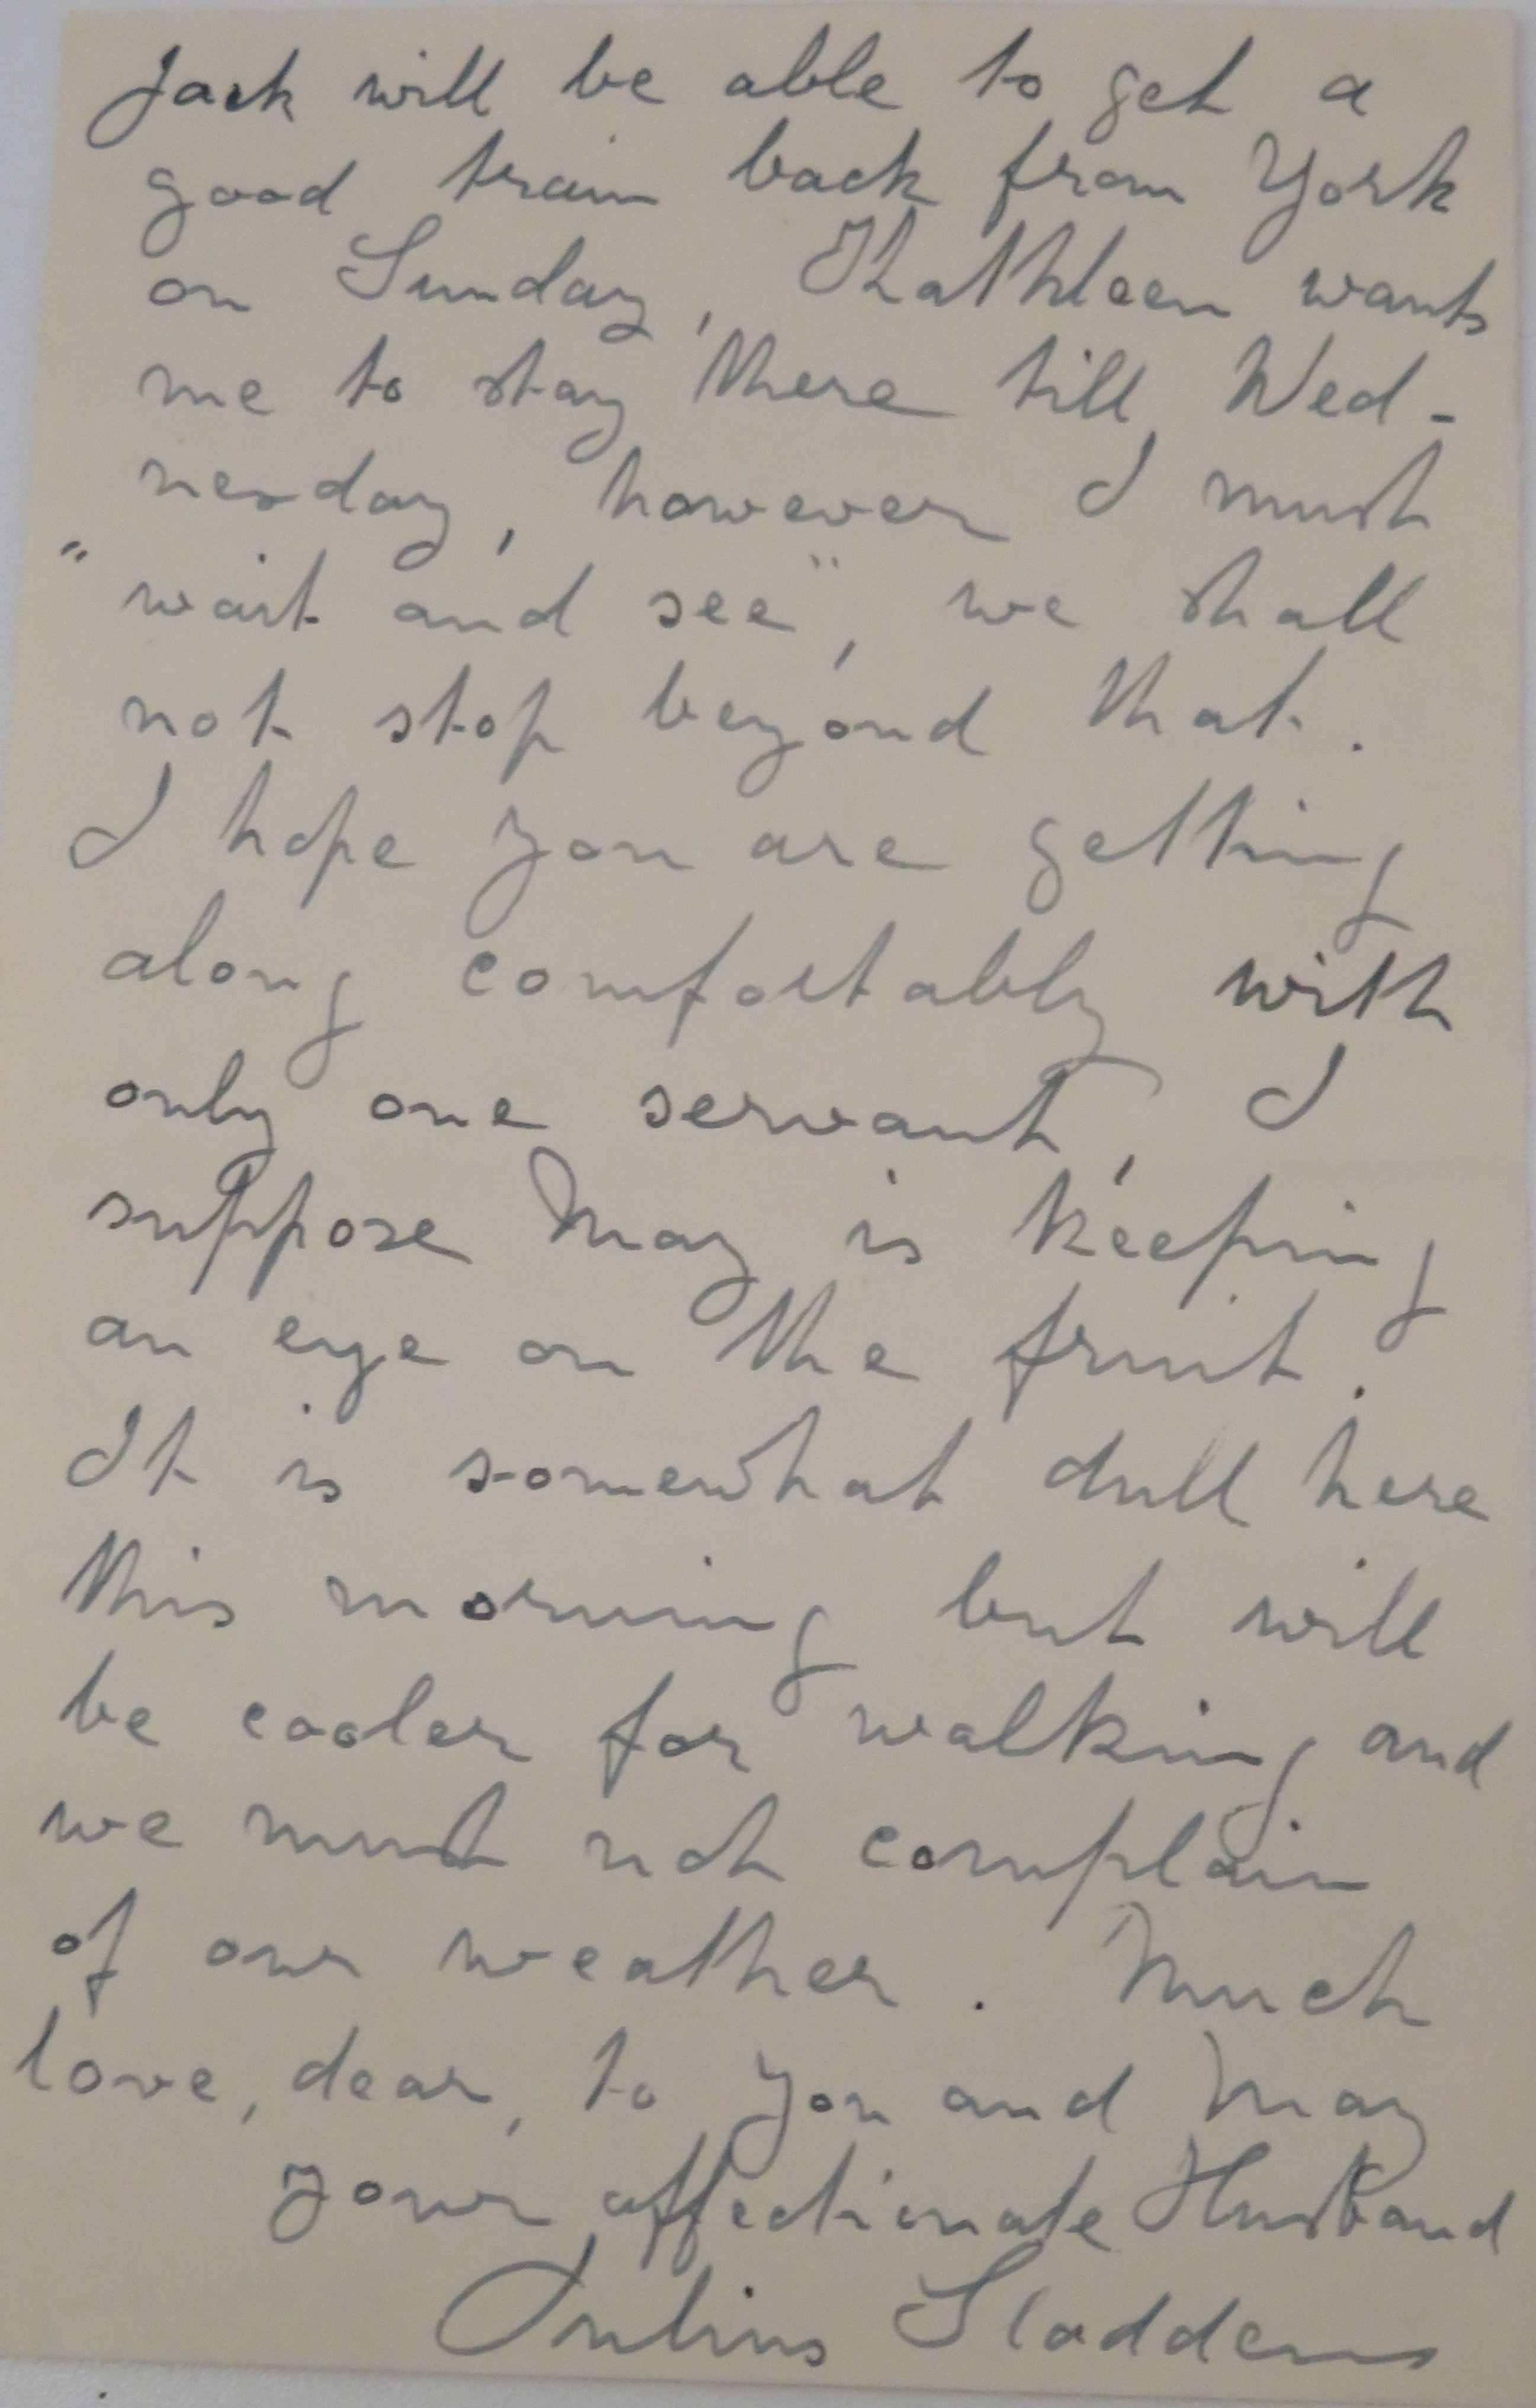 Jack will be able to get a
good train back from York
on Sunday, Kathleen wants
me to stay there till Wed-
nesday, however I must
"wait and see", we shall
not stop beyond that.
I hope you are getting
along comfortably with
only one servant, I
suppose May is keeping
an eye on the fruit.
It is somewhat dull here
this morning but will
be cooler for walking and
we must not complain
of our weather. Much
love, dear, to you and May
your affectionate Husband
Julius Sladden